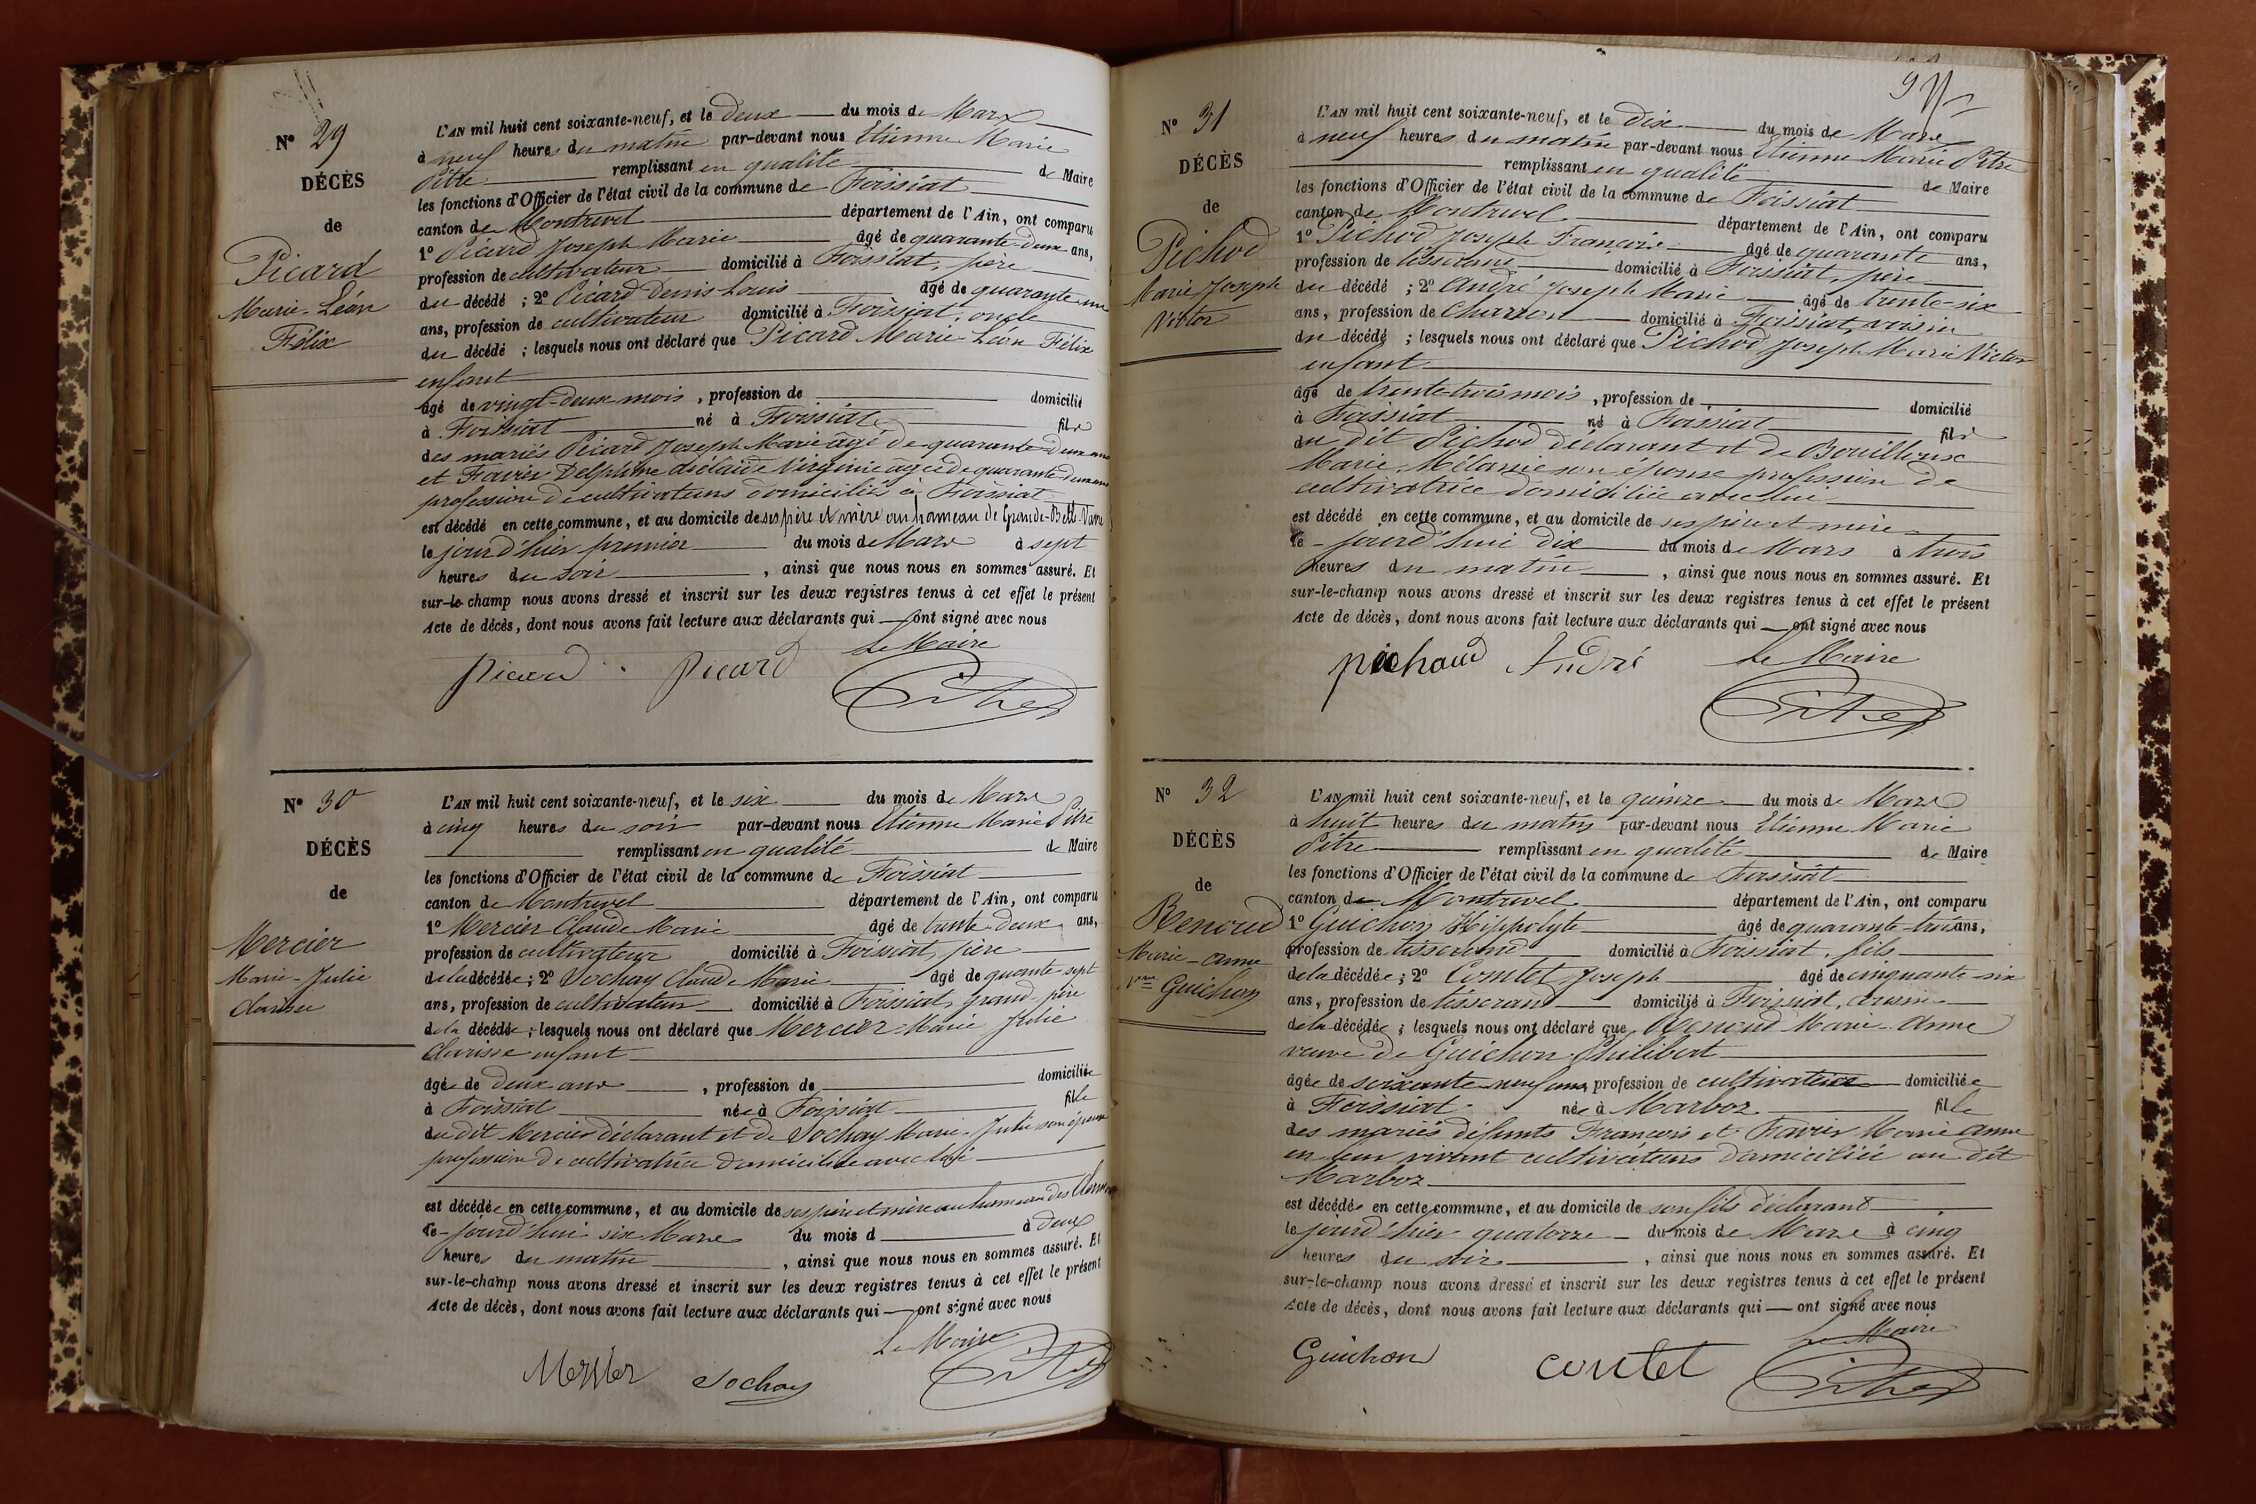 N° 29
DÉCÈS
de
Picard
Marie-Léon
Félix
L'AN mil huit cent soixante-neuf, et le deux du mois de Mars
à neuf heures du matin par-devant nous Etienne Marie
Pitre remplissant en qualité de Maire
les fonctions d'Officier de l'état civil de la commune de Foissiat
canton de Montrevel département de l'Ain, ont comparu
1° Picard Joseph Marie âgé de quarante-deux ans,
profession de cultivateur domicilié à Foissiat, père
du décédé ; 2° Picard Denis Louis âgé de quarante un
ans, profession de cultivateur domicilié à Foissiat, oncle
du décédé ; lesquels nous ont déclaré que Picard Marie-Léon Félix
enfant
âgé de vingt-deux mois, profession de domicilié
à Foissiat né à Foissiat fils
des mariés Picard Joseph Marie âgé de quarante-deux ans
et Favier Delphine Adélaïde Virginie âgée de quarante-deux ans
profession de cultivateurs domiciliés à Foissiat
est décédé en cette commune, et au domicile de ses père et mère au hameau de Grande-
le jour d'hier premier du mois de Mars à sept
heures du soir, ainsi que nous nous en sommes assuré. Et
sur-le-champ nous avons dressé et inscrit sur les deux registres tenus à cet effet le présent
Acte de décès, dont nous avons fait lecture aux déclarants qui ont signé avec nous
Le Maire
Picard Picard Pitre
N° 30
DÉCÈS
de
Mercier
Marie-Julie
Clarisse
L'AN mil huit cent soixante-neuf, et le six du mois de Mars
à cinq heures du soir par-devant nous Etienne Marie Pitre
remplissant en qualité de Maire
les fonctions d'Officier de l'état civil de la commune de Foissiat
canton de Montrevel département de l'Ain, ont comparu
1° Mercier Claude Marie âgé de trente-deux ans,
profession de cultivateur domicilié à Foissiat, père
de la décédée ; 2° Sochay Claude Marie âgé de sept
ans, profession de cultivateur domicilié à Foissiat, grand-père
de la décédée ; lesquels nous ont déclaré que Mercier Marie Julie
Clarisse enfant
âgée de deux ans, profession de domiciliée
à Foissiat née à Foissiat fille
du dit Mercier déclarant et de Sochay Marie-Julie son épouse
profession de cultivatrice domiciliée avec lui
est décédée en cette commune, et au domicile de ses père et mère au hameau des
le jourd'hui six Mars du mois d à deux
heures du matin, ainsi que nous nous en sommes assuré. Et
sur-le-champ nous avons dressé et inscrit sur les deux registres tenus à cet effet le présent
Acte de décès, dont nous avons fait lecture aux déclarants qui ont signé avec nous
Le Maire
Sochay Pitre
N° 31
DÉCÈS
de
Pichod
Marie Joseph
Victor
L'AN mil huit cent soixante-neuf, et le dix du mois de Mars
à neuf heures du matin par-devant nous Etienne Marie Pitre
remplissant en qualité de Maire
les fonctions d'Officier de l'état civil de la commune de Foissiat
canton de Montrevel département de l'Ain, ont comparu
1° Pichod Joseph François âgé de quarante ans,
profession de tisserand domicilié à Foissiat, père
du décédé ; 2° André Joseph Marie âgé de trente-six
ans, profession de Charron domicilié à Foissiat, voisin
du décédé ; lesquels nous ont déclaré que Pichod Joseph Marie Victor
enfant
âgé de trente-trois mois, profession de domicilié
à Foissiat né à Foissiat fils
du dit Pichod déclarant et de Bouilloux
Marie Mélanie son épouse profession de
cultivatrice domiciliée avec lui
est décédé en cette commune, et au domicile de ses père et mère
le jourd'hui dix du mois de Mars à trois
heures du matin, ainsi que nous nous en sommes assuré. Et
sur-le-champ nous avons dressé et inscrit sur les deux registres tenus à cet effet le présent
Acte de décès, dont nous avons fait lecture aux déclarants qui ont signé avec nous
Le Maire
pichaud André Pitre
N° 32
DÉCÈS
de
Renoud
Marie-Anne
Vve Guichon
L'AN mil huit cent soixante-neuf, et le quinze du mois de Mars
à huit heures du matin par-devant nous Etienne Marie
Pitre remplissant en qualité de Maire
les fonctions d'Officier de l'état civil de la commune de Foissiat
canton de Montrevel département de l'Ain, ont comparu
1° Guichon Hippolyte âgé de quarante-trois ans,
profession de tisserand domicilié à Foissiat, fils
de la décédée ; 2° Comtet Joseph âgé de cinquante-six
ans, profession de tisserand domicilié à Foissiat, cousin
de la décédée ; lesquels nous ont déclaré que Renoud Marie-Anne
veuve de Guichon Philibert
âgée de soixante-neuf ans, profession de cultivatrice domiciliée
à Foissiat née à Marboz fille
des mariés défunts François et Favier Marie Anne
en leur vivant cultivateurs domiciliés au dit
Marboz
est décédée en cette commune, et au domicile de son fils déclarant
le jour d'hier quatorze du mois de Mars à cinq
heures du soir, ainsi que nous nous en sommes assuré. Et
sur-le-champ nous avons dressé et inscrit sur les deux registres tenus à cet effet le présent
Acte de décès, dont nous avons fait lecture aux déclarants qui ont signé avec nous
Le Maire
Guichon Comtet Pitre